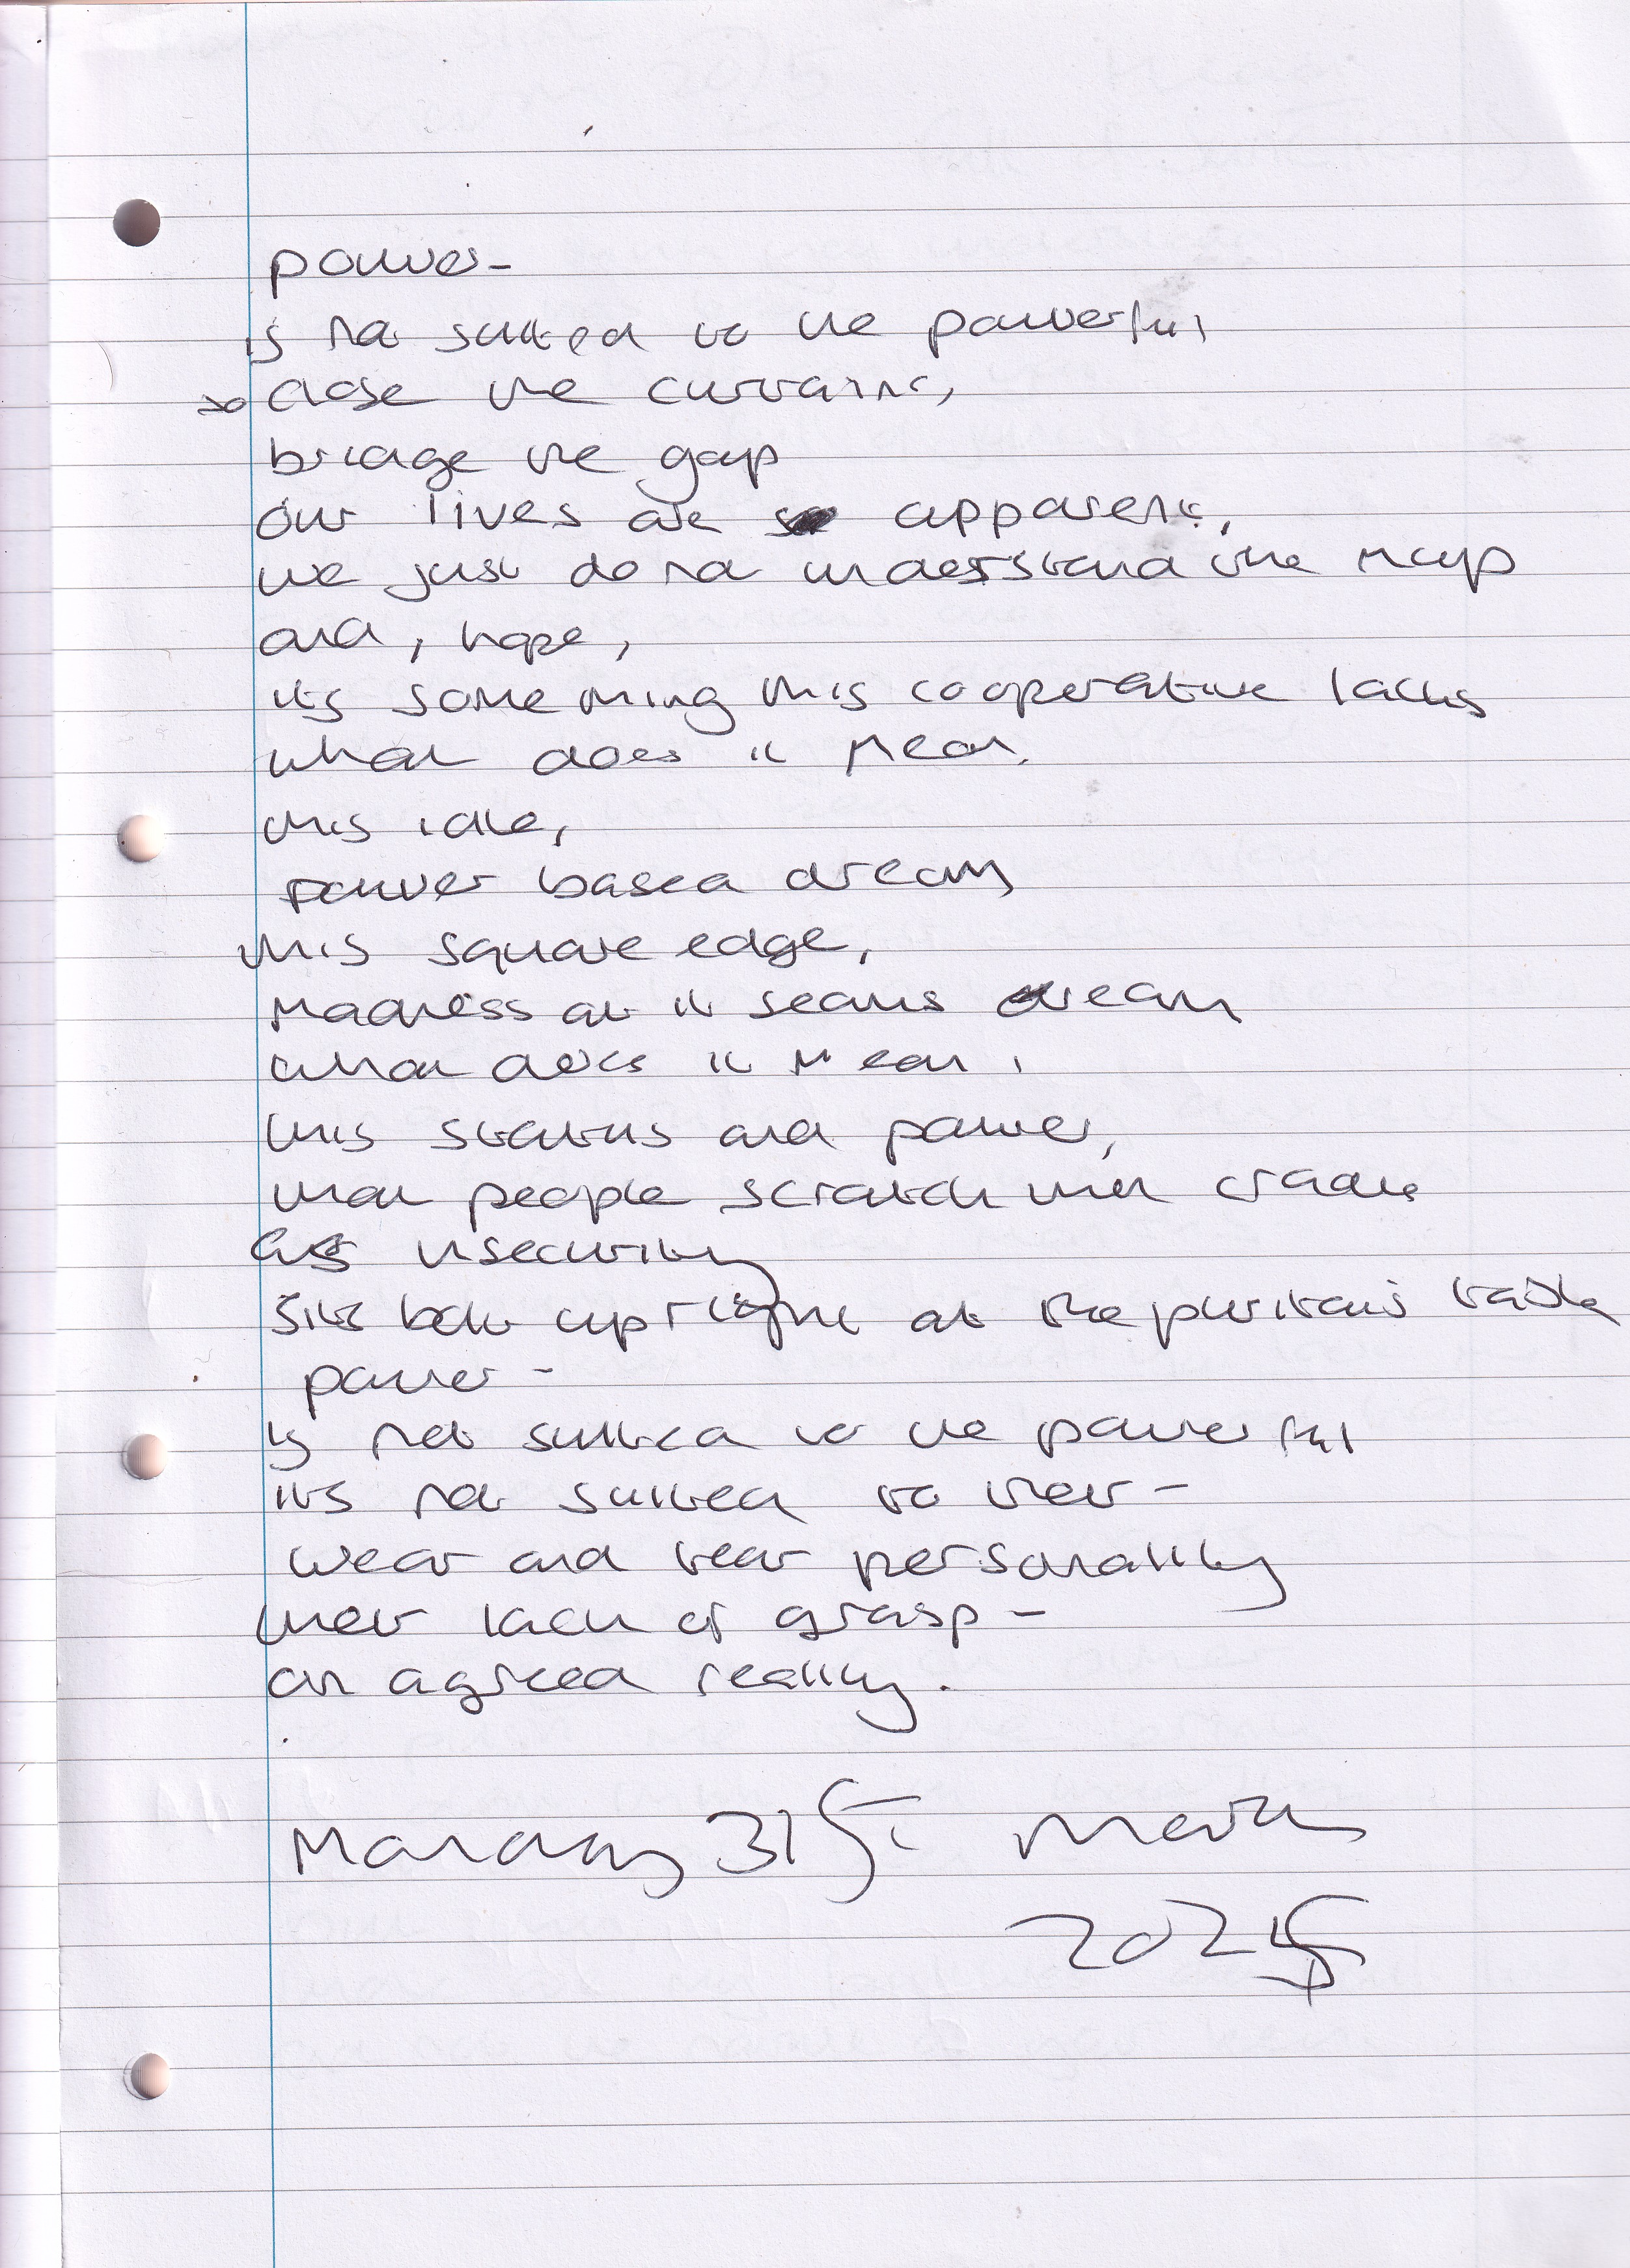 power -
is not suited to the powerful
so close the curtains,
bridge the gap
our lives are apparent,
we just do not understand the map
and, hope,
its something this cooperative lacks
what does it mean,
this idle,
power based dream
this square edge,
madness at it seams dream
what does it mean,
this status and power,
that people scratch their
insecurity
sits bolt upright at the puritans table
power -
is not suited to the powerful
its not suited to their -
wear and tear personality
their lack of grasp -
on agreed reality.
Monday 31st March
2025